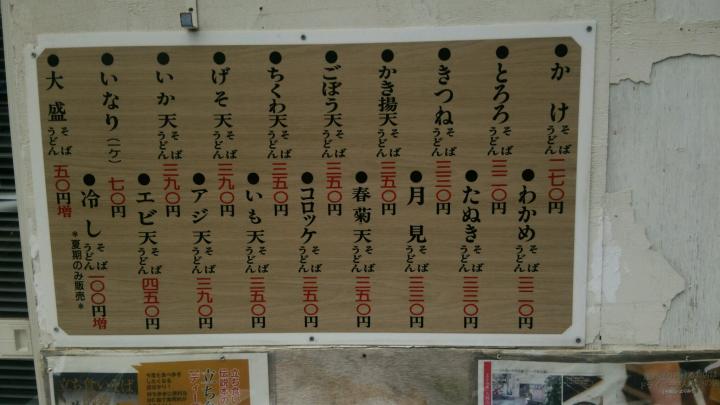 ●かけ そば うどん 二七〇円
●わかめ そば うどん 三二〇円
●とろろ そば うどん 三二〇円
●たぬき そば うどん 三三〇円
●きつね そば うどん 三三〇円
●月見 そば うどん 三三〇円
●かき揚天 そば うどん 三五〇円
●春菊天 そば うどん 三五〇円
●ごぼう天 そば うどん 三五〇円
●コロッケ そば うどん 三五〇円
●ちくわ天 そば うどん 三五〇円
●いも天 そば うどん 三五〇円
●げそ天 そば うどん 三九〇円
●アジ天 そば うどん 三九〇円
●いか天 そば うどん 三九〇円
●エビ天 そば うどん 四五〇円
●いなり(一ケ) 七〇円
●冷し そば うどん 一〇〇円増
*夏期のみ販売*
●大盛 そば うどん 五〇円増